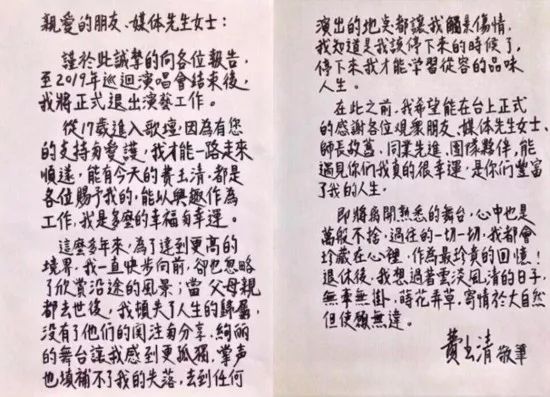 親愛的朋友、媒体先生女士：
謹於此誠摯的向各位報告，
至2019年巡迴演唱會結束後，
我將正式退出演藝工作。
從17歲進入歌壇，因為有您
的支持与愛護，我才能一路走來
順遂，能有今天的費玉清，都是
各位賜予我的，能以興趣作為
工作，我是多麼的幸福与幸運。
這麼多年來，為了達到更高的
境界，我一直快步向前，卻也忽略
了欣賞沿途的風景；當父母親
都去世後，我頓失了人生的歸屬，
沒有了他們的関注与分享，絢麗
的舞台讓我感到更孤獨，掌声
也填補不了我的失落，去到任何
演出的地点都讓我觸景傷情，
我知道是我該停下來的時候了，
停下來我才能學習從容的品味
人生。
在此之前，我希望能在台上正式
的感謝各位观衆朋友、媒体先生女士、
師長故舊、同業先進、團隊夥伴，能
遇見你們我真的很幸運，是你們豐富
了我的人生。
即將離開熟悉的舞台，心中也是
萬般不捨，過往的一切一切，我都會
珍藏在心裡，作為最珍貴的回憶！
退休後，我想過著雲淡風清的日子，
無牽無掛，蒔花弄草，寄情於大自然
但使願無違。
費玉清 敬筆